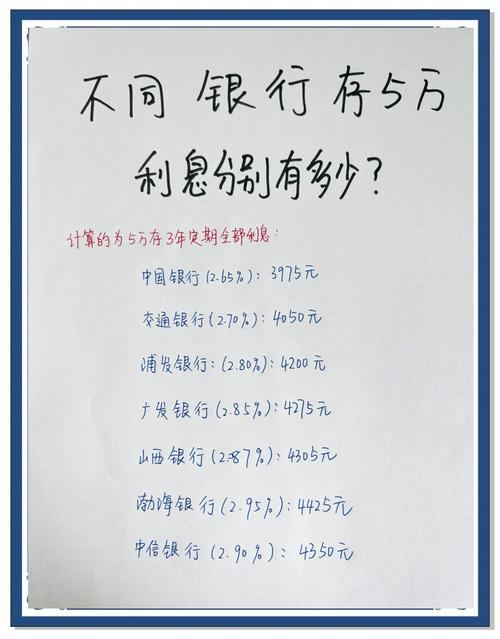 不同 银行 存5万
利息分别有多少?
计算的为5万存3年定期全部利息:
中国银行(2.65%): 3975元
交通银行(2.70%): 4050元
浦发银行:(2.80%): 4200元
广发银行(2.85%): 4275元
山西银行(2.87%): 4305元
渤海银行(2.95%): 4425元
中信银行(2.90%): 4350元